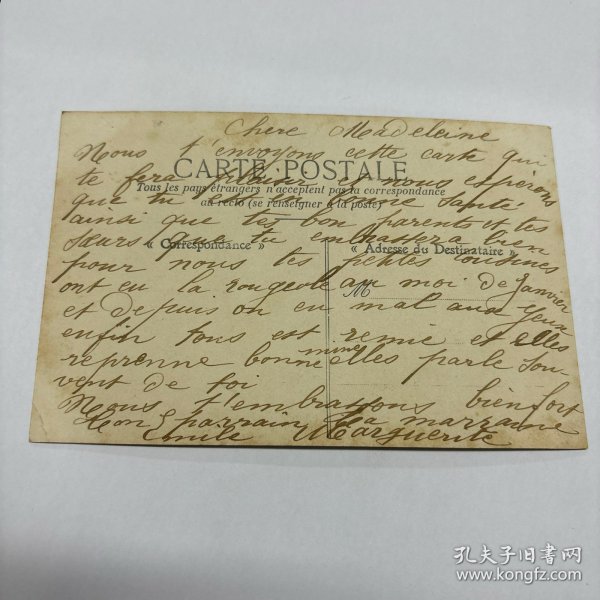 Chere Madeleine
Nous t'envoyons cette carte qui
CARTE POSTALE
te fera plaisir nous espérons
Tous les pays étrangers n'acceptent pas la correspondance
au recto (se renseigner à la poste)
que tu es en bonne santé
ainsi que tes bon parents et tes
sœurs que tu embrassera bien
« Correspondance »
« Adresse du Destinataire »
pour nous tes petites cousines
M
ont eu la rougeole au moi de Janvier
et depuis on eu mal aux yeux
enfin tous est remie et elles
reprenne bonne mine elles parle sou-
vent de toi
Nous t'embrassons bien fort
ton parrain ta marraine
Emile Marguerite
孔夫子旧书网
www.kongfz.com